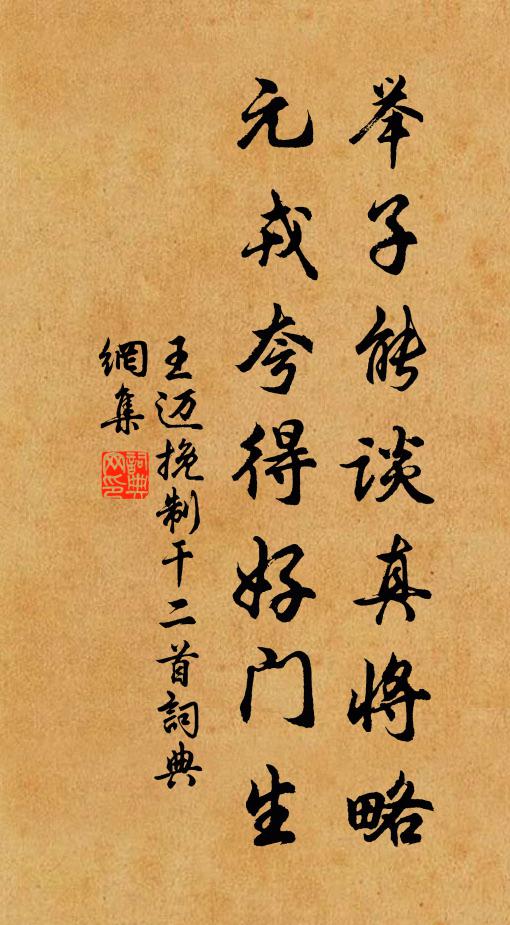 举子能谈真将略
元戎夸得好门生
王迈挽制干二首詞典
網集
詞典
网印